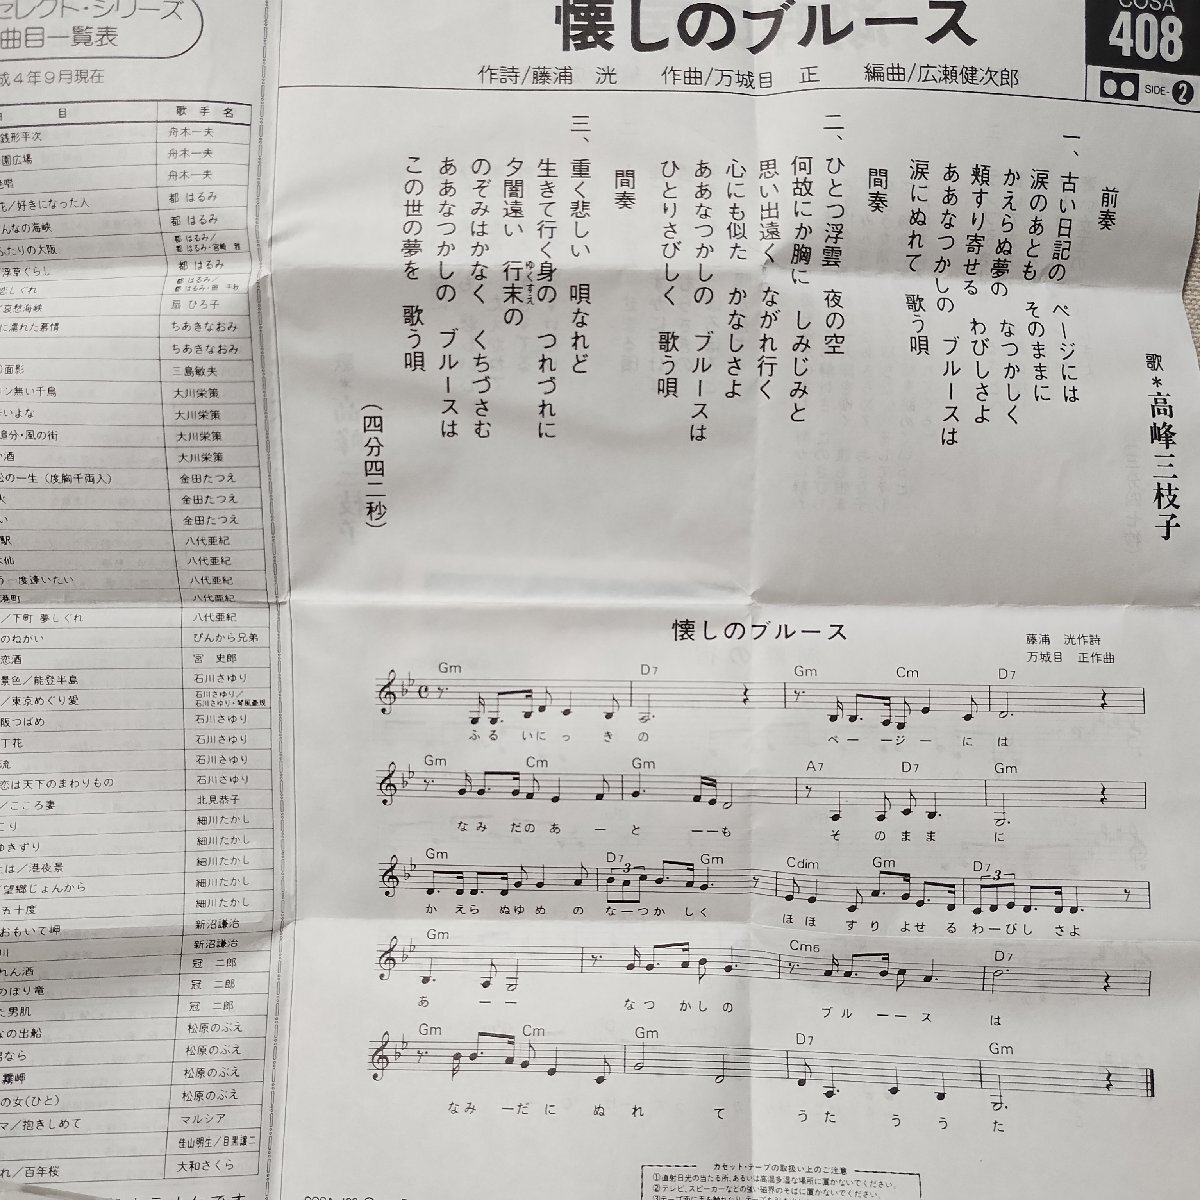 懐しのブルース
COSA
408
SIDE-2
作詩/藤浦 洸 作曲/万城目 正 編曲/広瀬健次郎
歌*高峰三枝子
前奏
一、古い日記の ページには
涙のあとも そのままに
かえらぬ夢の なつかしく
頬すり寄せる わびしさよ
ああなつかしの ブルースは
涙にぬれて 歌う唄
間奏
二、ひとつ浮雲 夜の空
何故にか胸に しみじみと
思い出遠く ながれ行く
心にも似た かなしさよ
ああなつかしの ブルースは
ひとりさびしく 歌う唄
間奏
三、重く悲しい 唄なれど
生きて行く身の つれづれに
夕闇遠い 行末の
ゆくすえ
のぞみはかなく くちづさむ
ああなつかしの ブルースは
この世の夢を 歌う唄
(四分四二秒)
懐しのブルース
藤浦 洸作詩
万城目 正作曲
Gm D7 Gm Cm D7
ふる いにっ きの ペーージーには
Gm Cm Gm A7 D7 Gm
なみ だの あーと ーーも そ のまま に
Gm D7 Gm Cdim Gm D7
3 3
か えら ぬゆめ の なーつか しく ほほ すり よせ る わーびし さよ
Gm Cm6 D7
あ ーー なつ かしの ブル ーース は
Gm Cm Gm D7 Gm
なみ ーだ に ぬ れ て う た う う た
カセット・テープの取扱い上のご注意
①直射日光の当たる所、あるいは高温多湿な場所に置かないでください。
②テレビ、スピーカーなどの強い磁界のそばに置かないでください。
セレクト・シリーズ
曲目一覧表
成4年9月現在
目 歌手名
銭形平次 舟木一夫
園広場 舟木一夫
唱 舟木一夫
花/好きになった人 都 はるみ
んなの海峡 都 はるみ
ふたりの大阪 都 はるみ/都 はるみ・宮崎 雅
浮草ぐらし 都 はるみ
しぐれ
哀愁海峡 扇 ひろ子
に濡れた慕情 ちあきなおみ
ちあきなおみ
面影 三島敏夫
ン無い千鳥 大川栄策
いまな 大川栄策
追分・風の街 大川栄策
酒 大川栄策
松の一生(度胸千両入) 金田たつえ
金田たつえ
い 金田たつえ
駅 八代亜紀
仙 八代亜紀
う一度逢いたい 八代亜紀
港町 八代亜紀
/下町 夢しぐれ 八代亜紀
のねがい ぴんから兄弟
恋酒 宮 史郎
景色/能登半島 石川さゆり
/東京めぐり愛 石川さゆり/石川さゆり・琴風豪規
阪つばめ 石川さゆり
丁花 石川さゆり
流 石川さゆり
恋は天下のまわりもの 石川さゆり
/こころ妻 北見恭子
こり 細川たかし
ゆきずり 細川たかし
たは/港夜景 細川たかし
望郷じょんから 細川たかし
五十度 細川たかし
おもいて岬 新沼謙治
川 新沼謙治
れん酒 冠 二郎
のぼり竜 冠 二郎
た男肌 冠 二郎
なの出船 松原のぶえ
なら 松原のぶえ
霧岬 松原のぶえ
の女(ひと) 松原のぶえ
マ/抱きしめて マルシア
佳山明生/日黒譲二
れ/百年桜 大和さくら